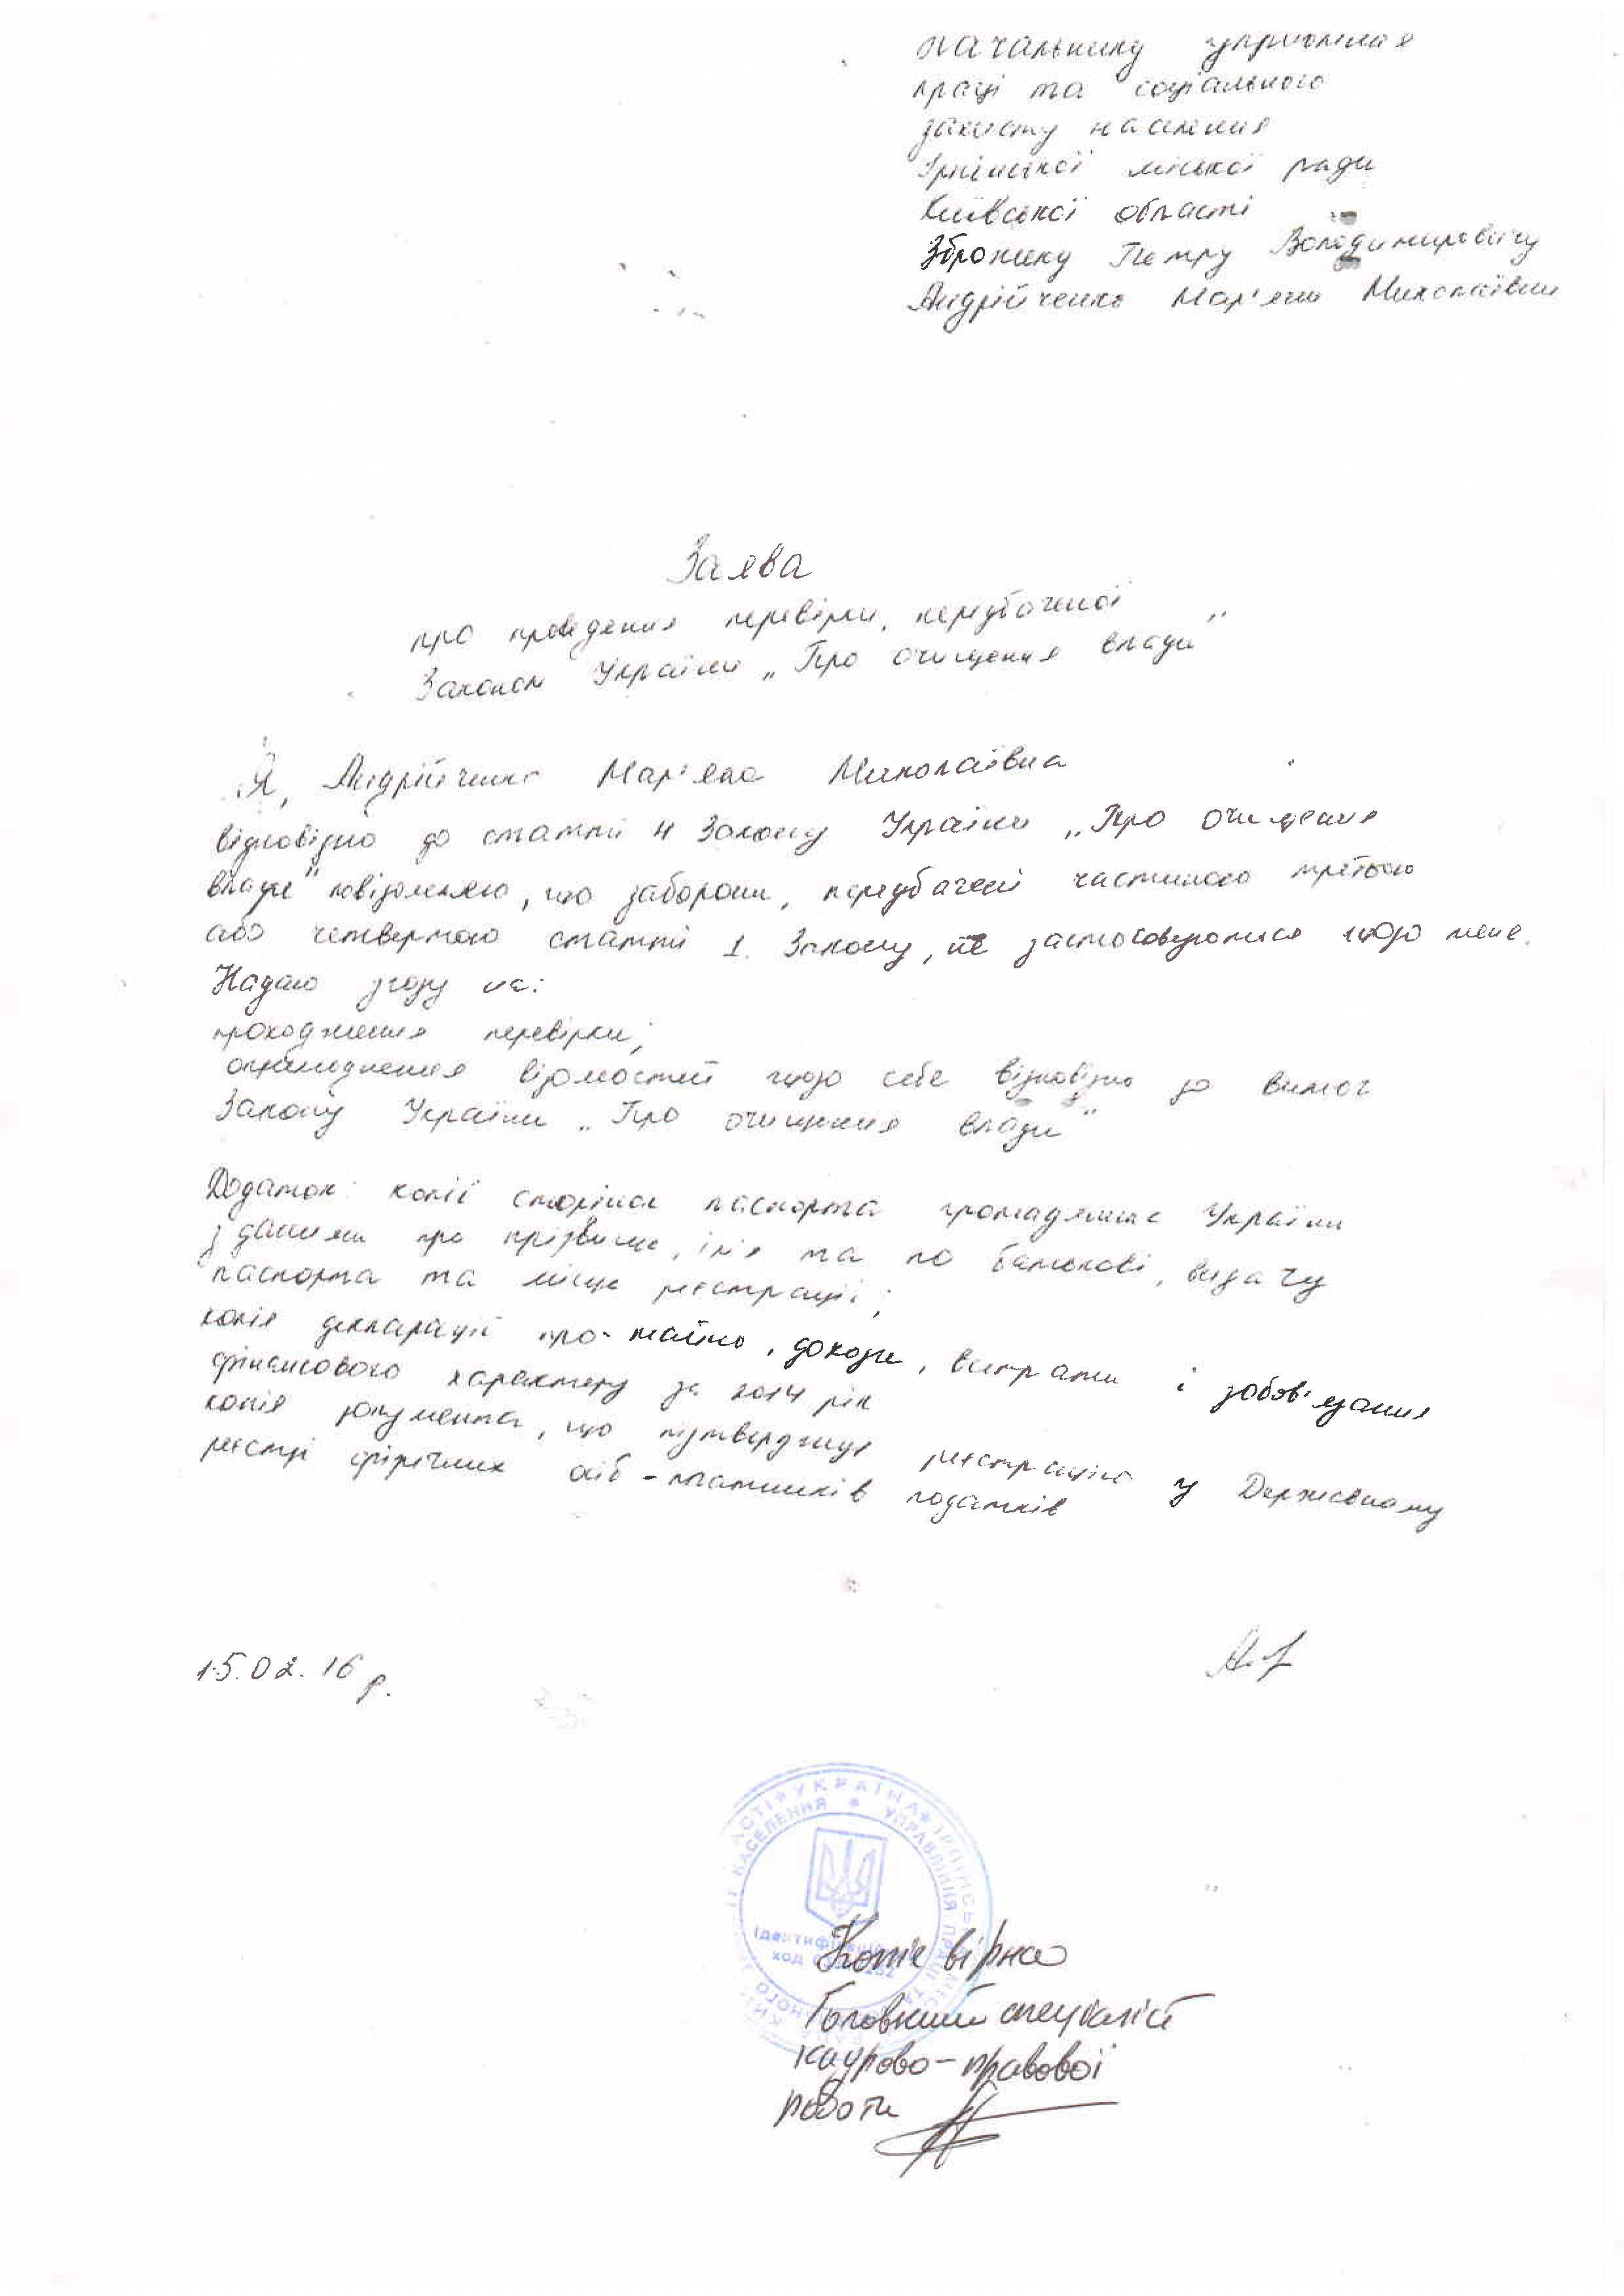 Начальнику управління
праці та соціального
захисту населення
Ірпінської міської ради
Київської області
Зброжеку Петру Володимировичу
Андрійченко Мар'яни Миколаївни
Заява
про проведення перевірки, передбаченої
Законом України „Про очищення влади"
Я, Андрійченко Мар'яна Миколаївна
відповідно до статті 4 Закону України „Про очищення
влади" повідомляю, що заборони, передбачені частиною третьою
або четвертою статті 1. Закону, не застосовуються щодо мене.
Надаю згоду на:
проходження перевірки;
оприлюднення відомостей щодо себе відповідно до вимог
Закону України „Про очищення влади"
Додаток: копії сторінок паспорта громадянина України
з даними про прізвище, ім'я та по батькові, видачу
паспорта та місце реєстрації;
копія декларації про майно, доходи, витрати і зобов'язання
фінансового характеру за 2014 рік
копія документа, що підтверджує реєстрацію у Державному
реєстрі фізичних осіб-платників податків
15.02.16 р.
УКРАЇНА * ІРПІНСЬК
НАСЕЛЕННЯ * УПРАВЛІННЯ ПРАЦІ ТА
Ідентифікаційний
код
Копіє вірна
Головний спеціаліст
кадрово-правової
роботи